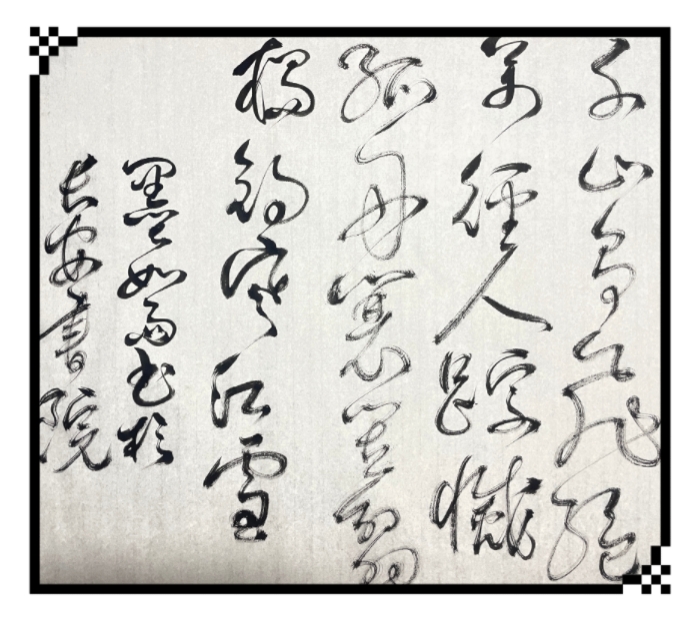 千山鳥飛絕
萬徑人踪滅
孤舟蓑笠翁
獨釣寒江雪
墨如书於
長安書院